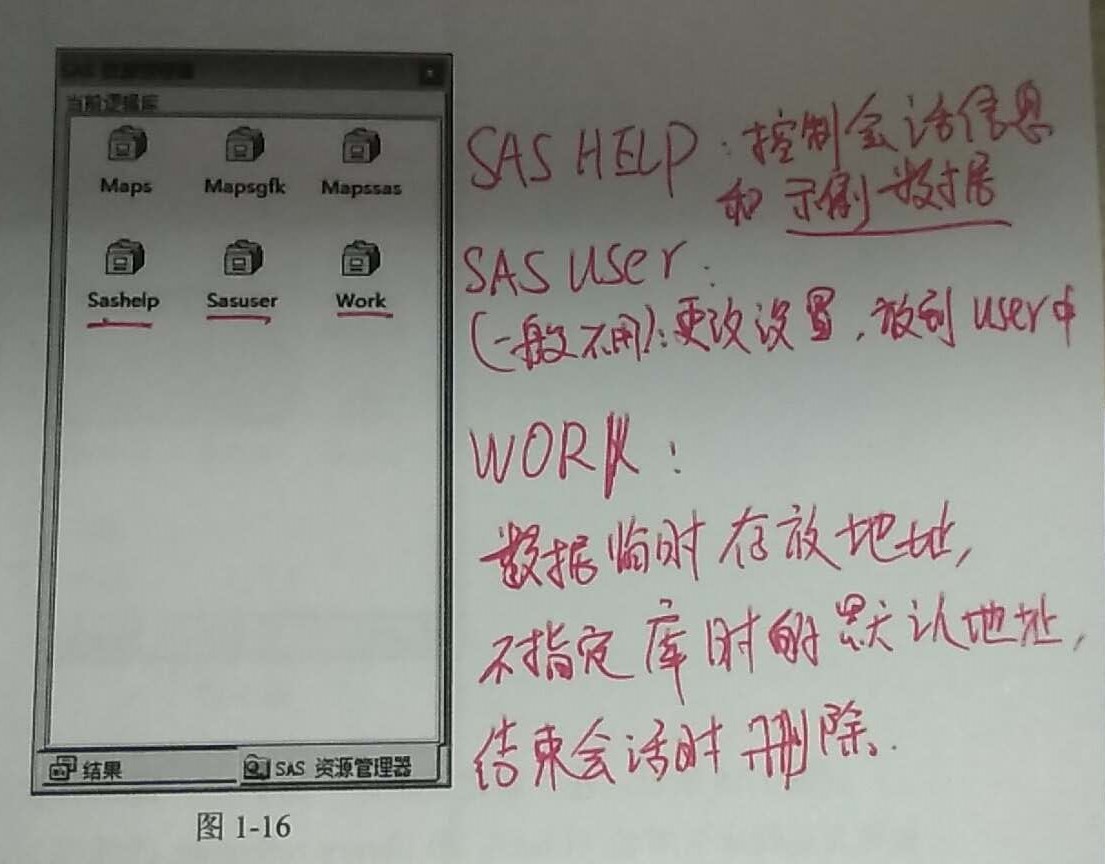 SAS 资源管理器
当前逻辑库
Maps Mapsgfk Mapssas
Sashelp Sasuser Work
结果 SAS 资源管理器
图 1-16
SAS HELP：控制会话信息
和示例数据
SAS user：
(一般不用)：更改设置，放到 user中
WORK：
数据临时存放地址，
不指定库时的默认地址，
结束会话时删除。